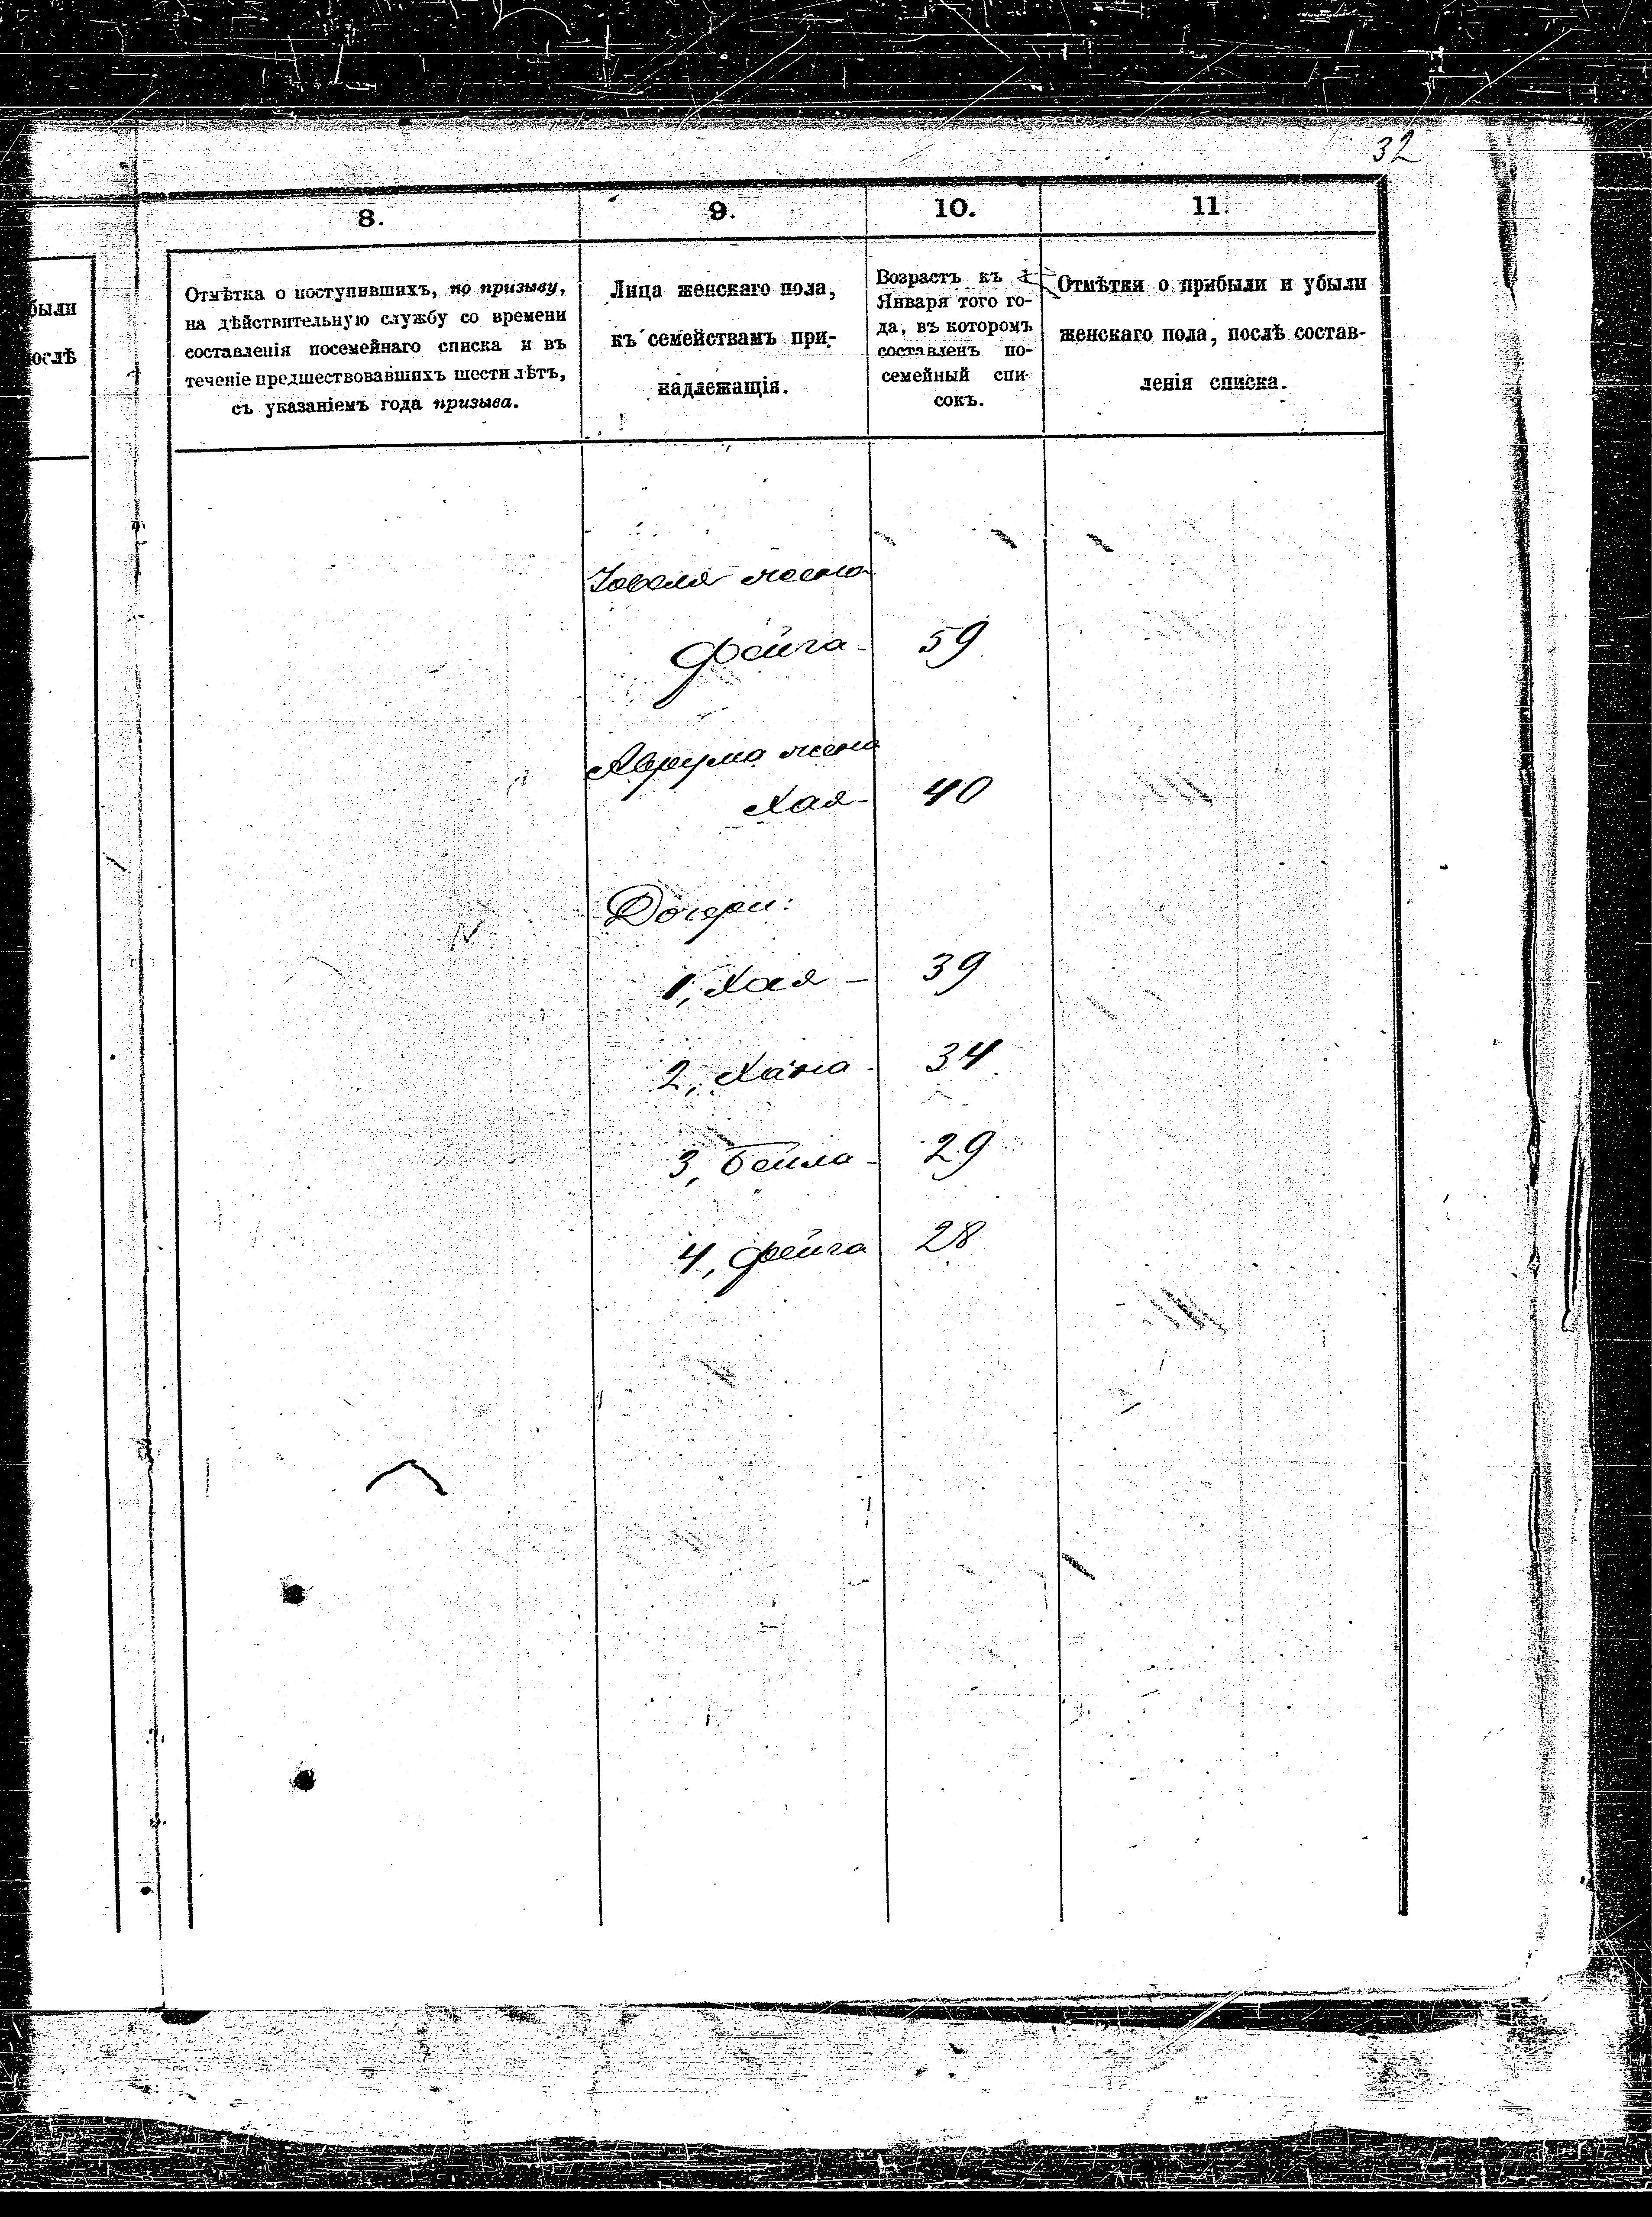 32
8.
9.
10.
11.
были
ослѣ
Отмѣтка о поступившихъ, по призыву,
на дѣйствительную службу со времени
составленія посемейнаго списка и въ
теченіе предшествовавшихъ шести лѣтъ,
съ указаніемъ года призыва.
Лица женскаго пола,
къ семействамъ при-
надлежащія.
Возрастъ къ 1
Января того го-
да, въ которомъ
составленъ по-
семейный спи-
сокъ.
Отмѣтки о прибыли и убыли
женскаго пола, послѣ состав-
ленія списка.
жена
Фейга - 59
Аврума жена
Хая - 40
Дочери:
1, Хая - 39
2, Хана - 34
3, Бейла - 29
4, Фейга 28